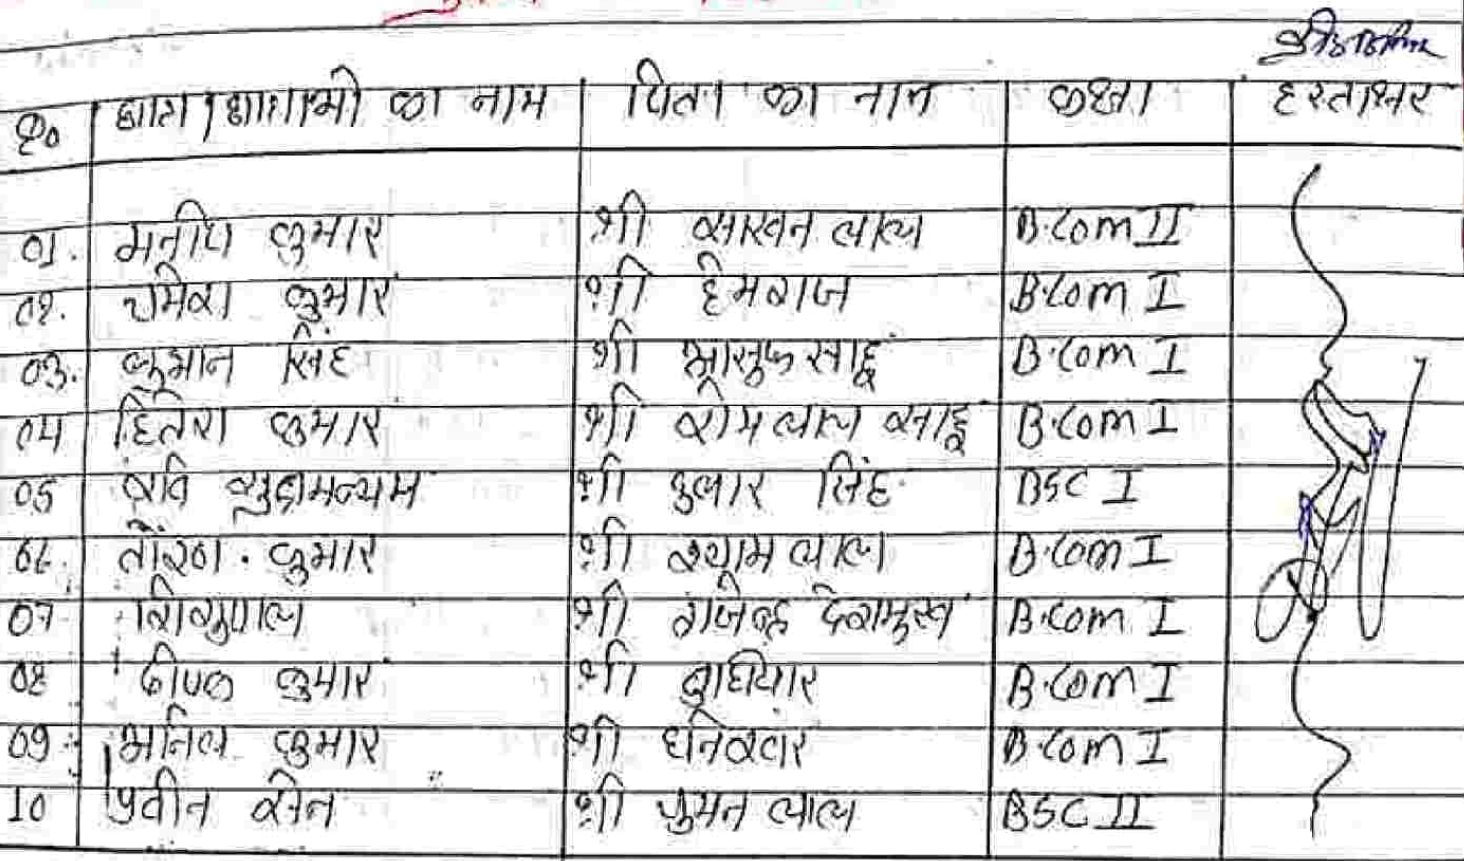 क्र० छात्र/छात्राओं का नाम पिता का नाम कक्षा हस्ताक्षर
01. मनीष कुमार श्री साखन लाल B.Com II
02. कुमार श्री हेमराज B.Com I
03. कुमान सिंह श्री साहू B.Com I
04 हितेश कुमार श्री रोमलाल साहू B.Com I
05 रवि श्री सिंह BSC I
06. तोरण कुमार श्री श्याम लाल B.Com I
07 शिशुपाल श्री राजेन्द्र देशमुख B.Com I
08 दीपक कुमार श्री B.Com I
09 अनिल कुमार श्री B.Com I
10 प्रवीन सेन श्री लाल BSC II